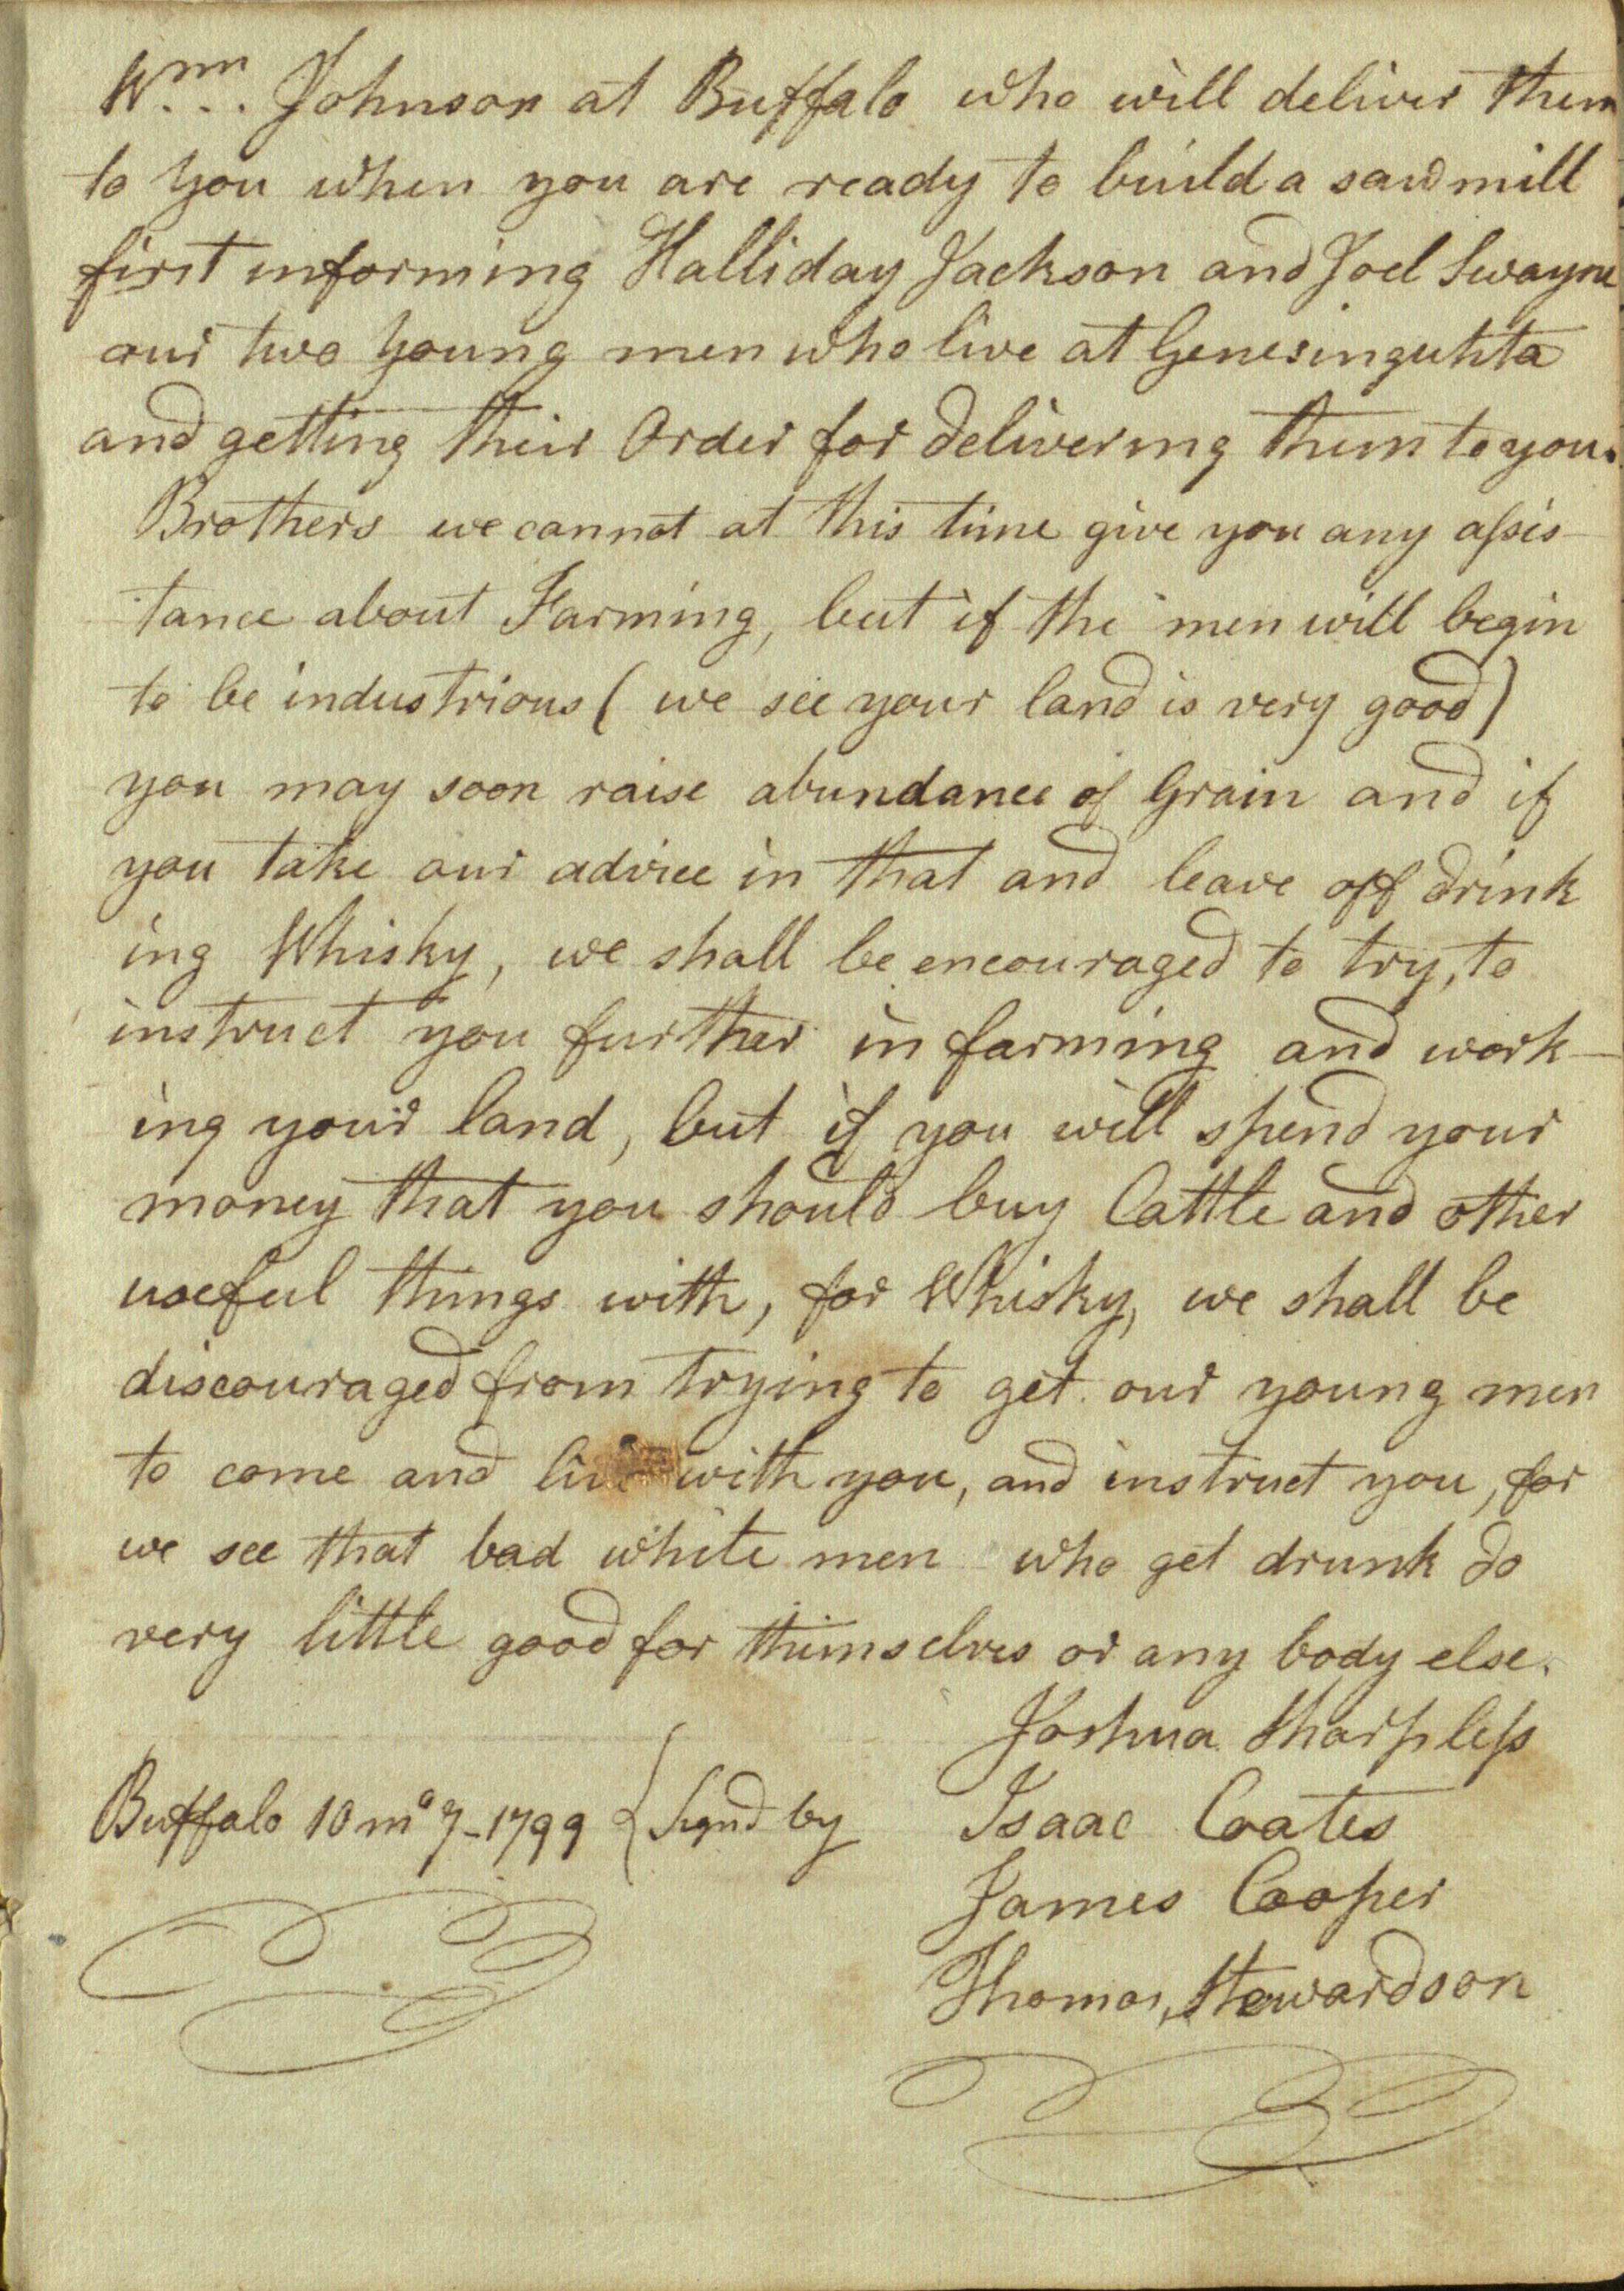 Wm. Johnson at Buffalo who will deliver them
to you when you are ready to build a sawmill
first informing Halliday Jackson and Joel Swayne
our two young men who live at Genesinguhta
and getting their Order for delivering them to you.
Brothers we cannot at this time give you any assis-
tance about Farming, but if the men will begin
to be industrious (we see your land is very good)
you may soon raise abundance of Grain and if
you take our advice in that and leave off drink
ing Whisky, we shall be encouraged to try, to
instruct you further in farming and work-
ing your land, but if you will spend your
money that you should buy Cattle and other
useful things with, for Whisky, we shall be
discouraged from trying to get our young men
to come and live with you, and instruct you, for
we see that bad white men who get drunk do
very little good for themselves or any body else.
Joshua Sharpless
Buffalo 10 mo 7-1799 { Signd by Isaac Coates
James Cooper
Thomas Stewardson